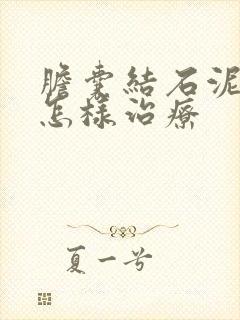 膽囊結石泥
怎樣治療
夏一兮